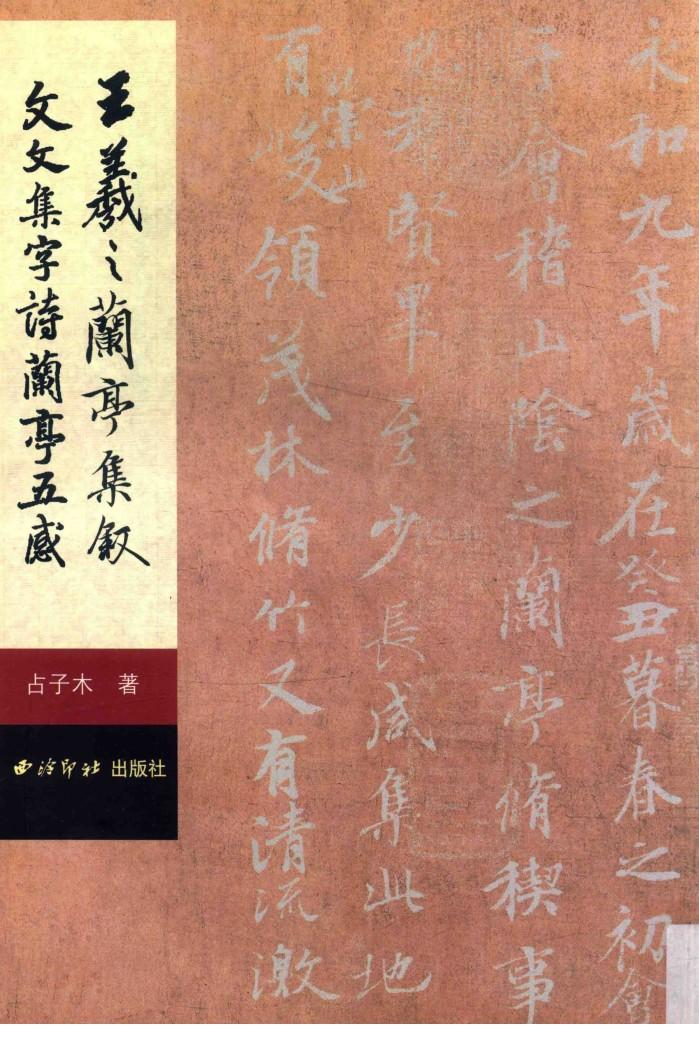 王羲之蘭亭集叙
文文集字詩蘭亭五感
占子木 著
西泠印社 出版社
永和九年歲在癸丑暮春之初會
于會稽山陰之蘭亭脩稧事
也羣賢畢至少長咸集此地
有崇山峻領茂林脩竹又有清流激